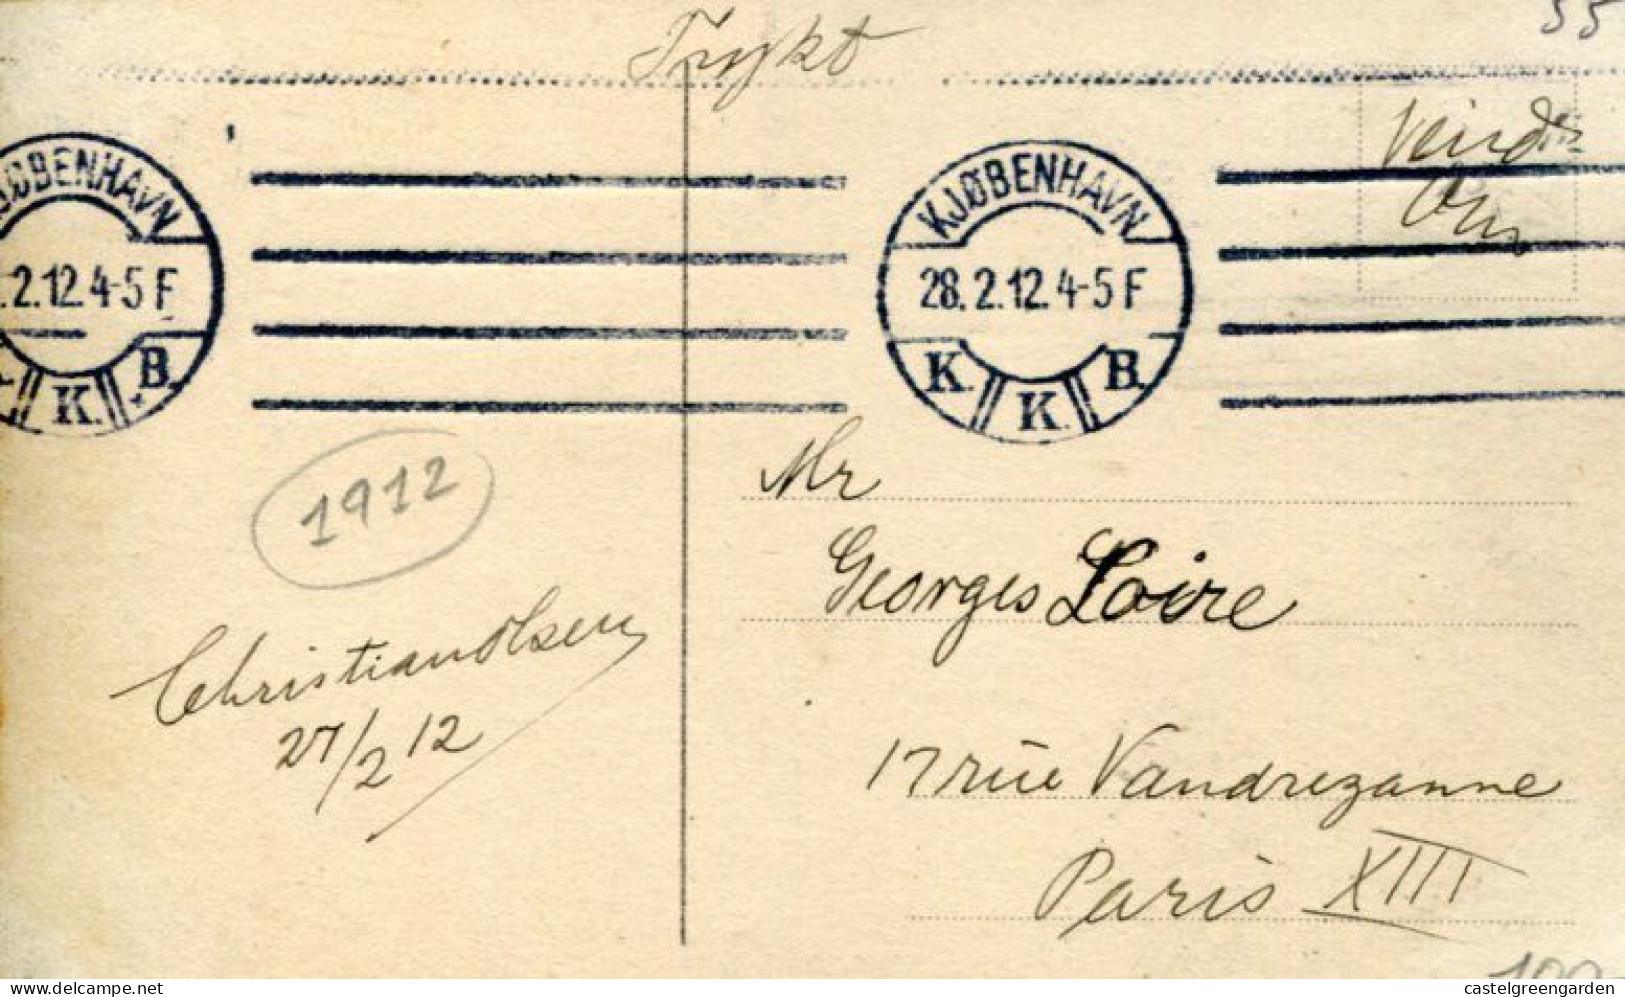 55
Trykt
Vend
Om
KJØBENHAVN
.2.12.4-5 F
K. B.
KJØBENHAVN
28.2.12.4-5 F
K. K. B.
1912
Christian Olsen
27/2 12
Mr
Georges Loire
17 rue Vandrezanne
Paris XIII
100
castelgreengarden